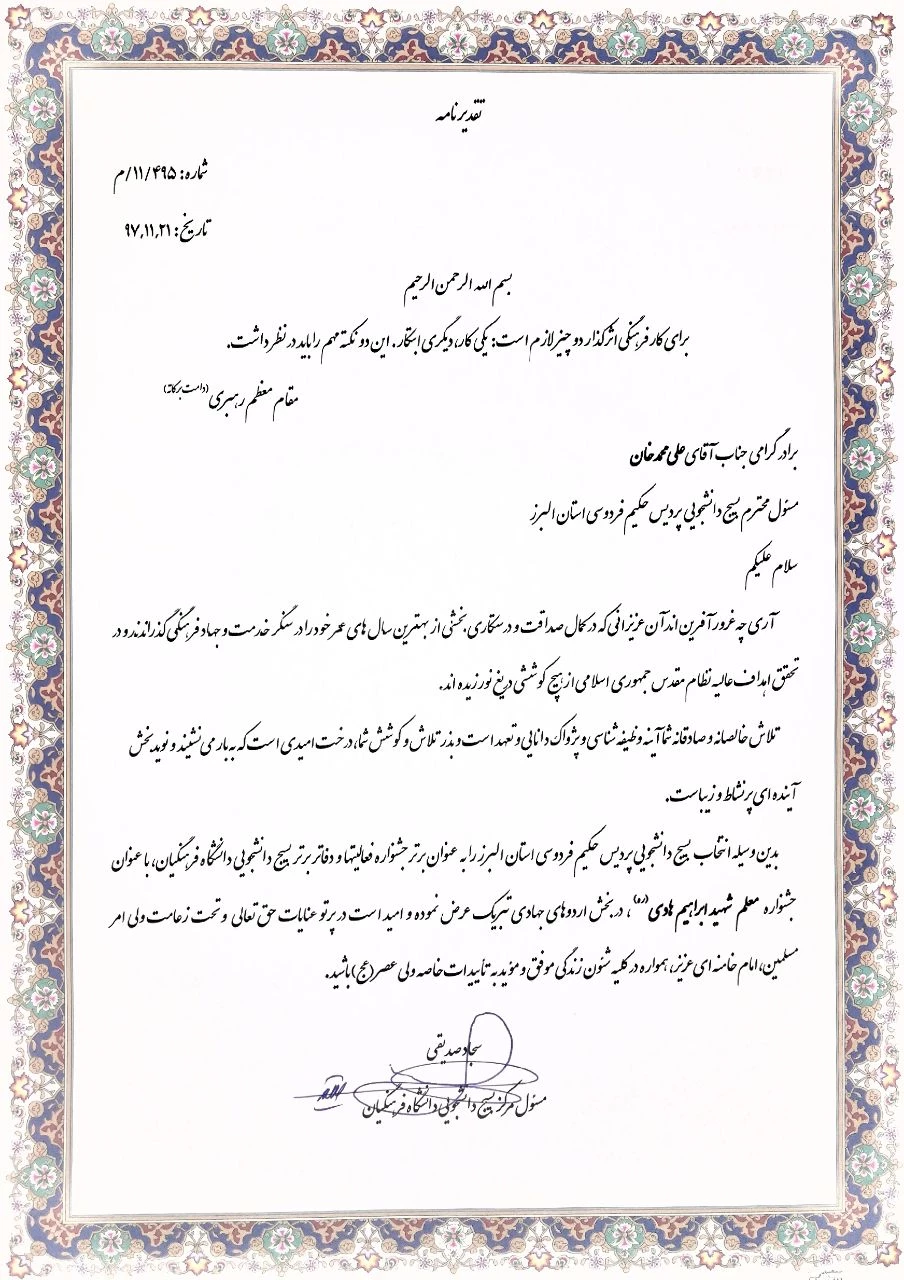 تقدیرنامه
شماره: ۴۹۵/۱۱/م
تاریخ: ۹۷,۱۱,۲۱
بسم الله الرحمن الرحیم
برای کار فرهنگی اثرگذار دو چیز لازم است: یکی کار، دیگری ابتکار. این دو نکته مهم را باید در نظر داشت.
مقام معظم رهبری (دامت برکاته)
برادر گرامی جناب آقای علی محمدخان
مسئول محترم بسیج دانشجویی پردیس حکیم فردوسی استان البرز
سلام علیکم
آری چه غرور آفرین اند آن عزیزانی که در کمال صداقت و درستکاری بخشی از بهترین سال های عمر خود را در سنگر خدمت و جهاد فرهنگی گذراندند و در
تحقق اهداف عالیه نظام مقدس جمهوری اسلامی از هیچ کوششی دریغ نورزیده اند.
تلاش خالصانه و صادقانه شما آینه وظیفه شناسی و پژواک دانایی و تعهد است و بذر تلاش و کوشش شما، درخت امیدی است که به بار می نشیند و نوید بخش
آینده ای پر نشاط و زیباست.
بدین وسیله انتخاب بسیج دانشجویی پردیس حکیم فردوسی استان البرز را به عنوان برتر جشنواره فعالیتها و دفاتر برتر بسیج دانشجویی دانشگاه فرهنگیان، با عنوان
جشنواره معلم شهید ابراهیم هادی (ره)، در بخش اردوهای جهادی تبریک عرض نموده و امید است در پرتو عنایات حق تعالی و تحت زعامت ولی امر
مسلمین، امام خامنه ای عزیز، همواره در کلیه شئون زندگی موفق و مؤید به تأییدات خاصه ولی عصر (عج) باشید.
سجاد صدیقی
مسئول مرکز بسیج دانشجویی دانشگاه فرهنگیان